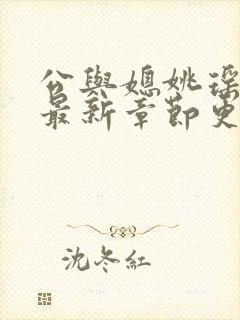 公與媳姚瑶
最新章節更
沈冬紅